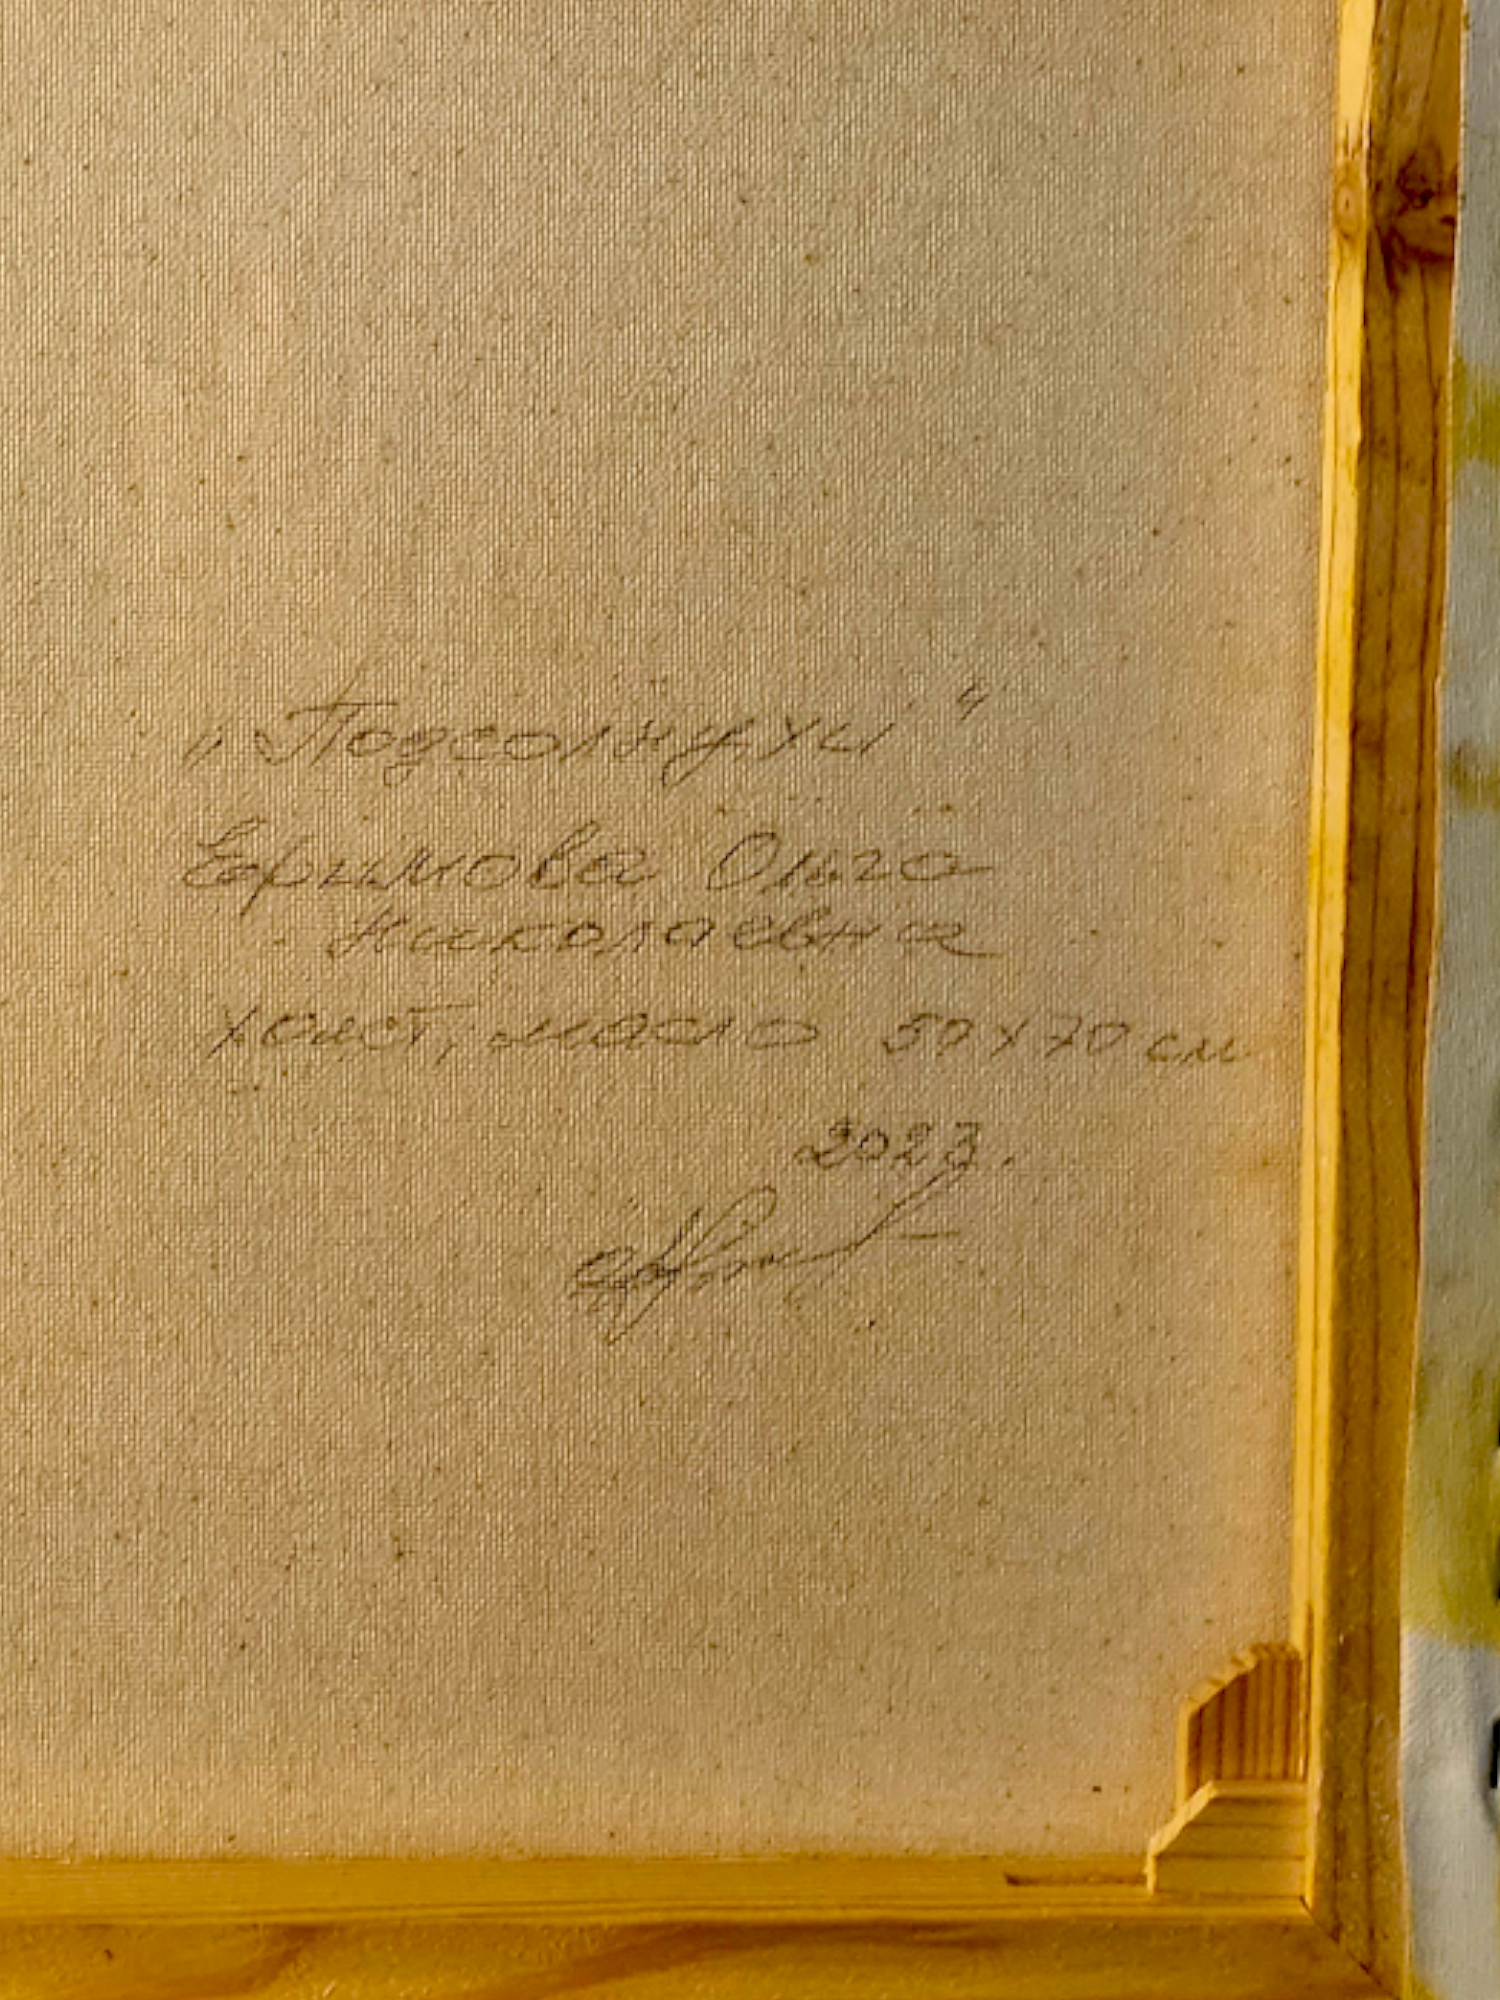 „Подсолнухи"
Ефимова Ольга
Николаевна
холст, масло 50х70 см
2023.